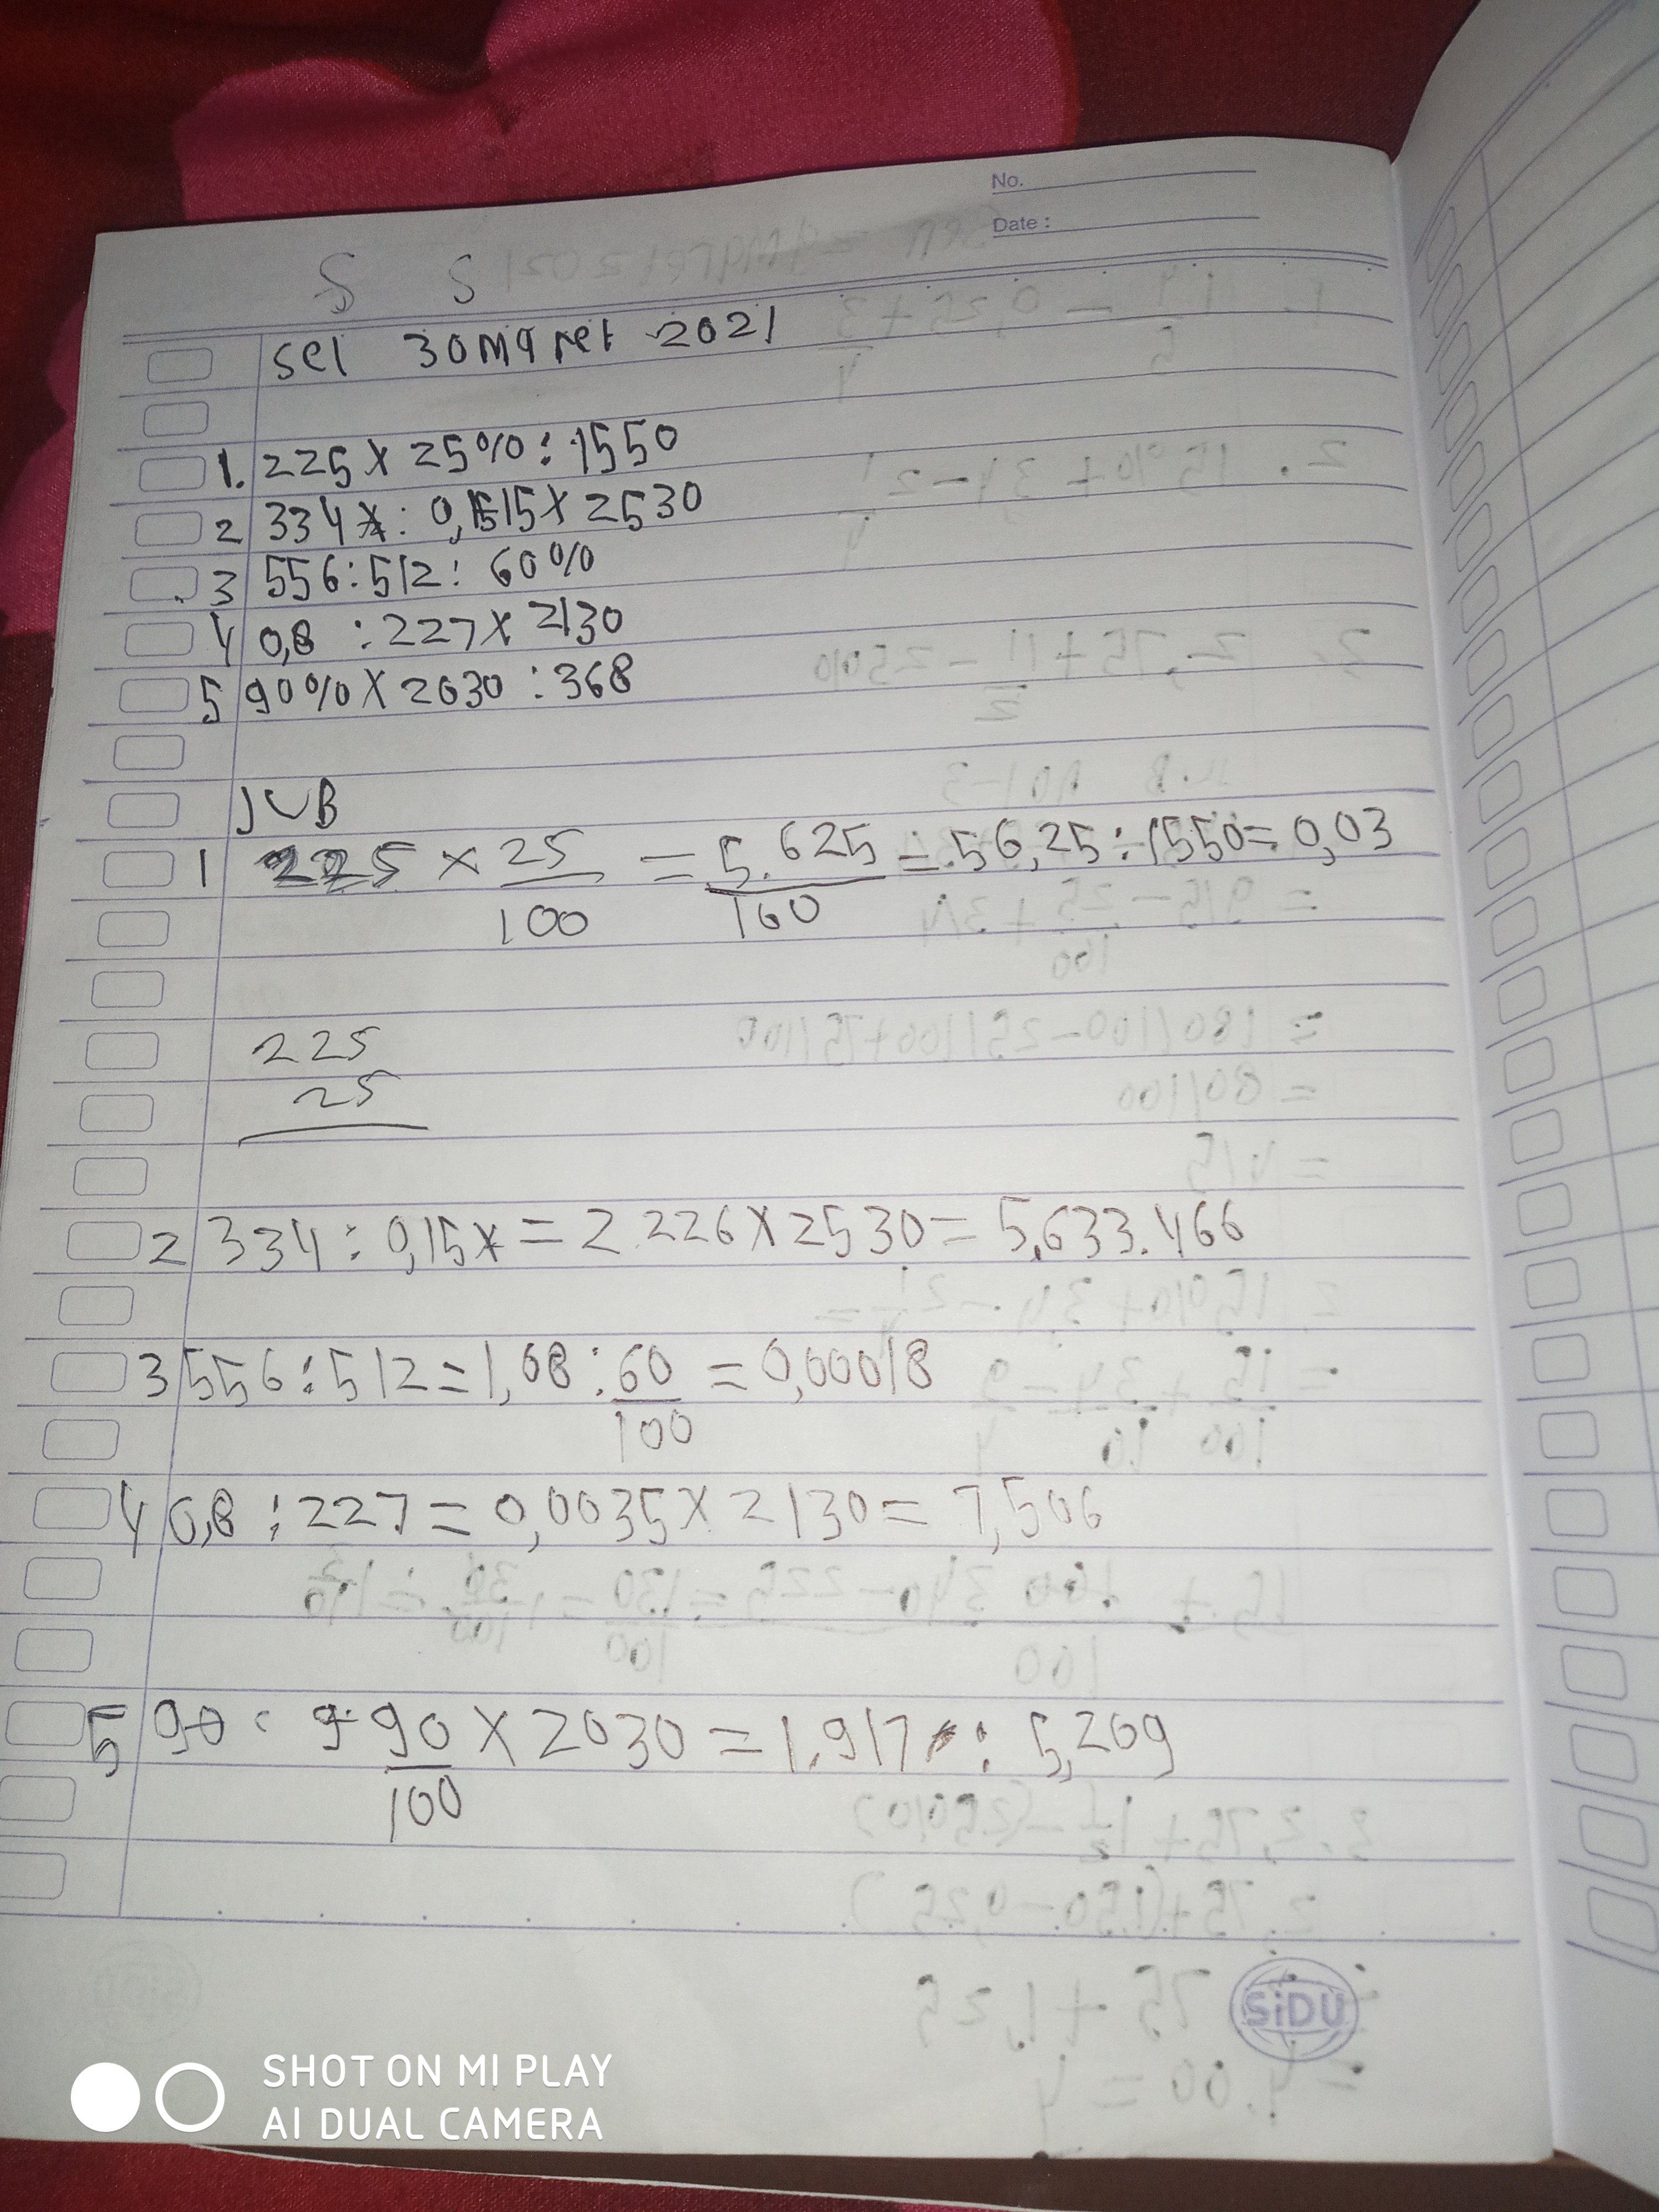 No.
Date :
S S
sel 30 Maret 2021
1. 225 x 25% : 1550
2 334 : 0,15 x 2530
3 556 : 512 : 60%
4 0,8 : 227 x 2130
5 90% x 2030 : 368
JUB
1 225 x 25/100 = 5.625/100 = 56,25 : 1550 = 0,03
225
25
2 334 : 0,15 x = 2.226 x 2530 = 5,633.466
3 556 : 512 = 1,08 : 60/100 = 0,00018
4 0,8 : 227 = 0,0035 x 2130 = 7,506
5 90 : 90/100 x 2030 = 1.917 : 5,209
SiDU
SHOT ON MI PLAY
AI DUAL CAMERA